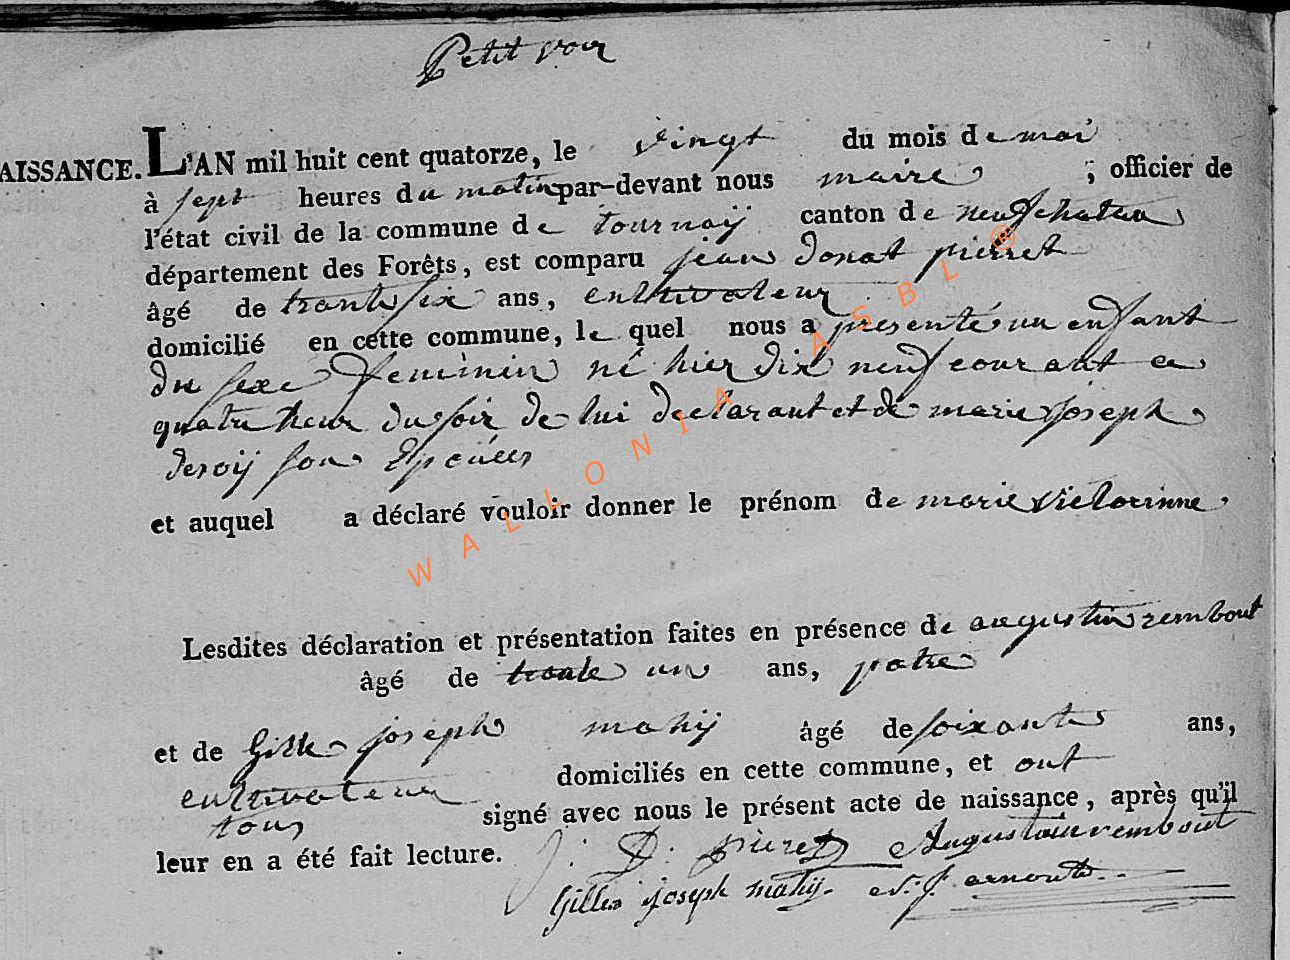 Petit voir
AISSANCE. L'AN mil huit cent quatorze, le vingt du mois de mai
à sept heures du matin par-devant nous maire ; officier de
l'état civil de la commune de tournaÿ canton de neufchateau
département des Forêts, est comparu jean donat pierret
âgé de trante six ans, cultivateur
domicilié en cette commune, le quel nous a presenté un enfant
du sexe feminin né hier dix neuf courant a
quatre heur du soir de lui declarant et de marie joseph
deroÿ son Epouse
et auquel a déclaré vouloir donner le prénom de marie victorinne
Lesdites déclaration et présentation faites en présence de augustin rembout
âgé de trante un ans, patre
et de Gille joseph mahÿ âgé de soixante ans,
cultivateur domiciliés en cette commune, et ont
tous signé avec nous le présent acte de naissance, après qu'il
leur en a été fait lecture. J: D: pierret Augustin rembout
Gilles joseph mahÿ. J. arnould
WALLONIA ASBL ®